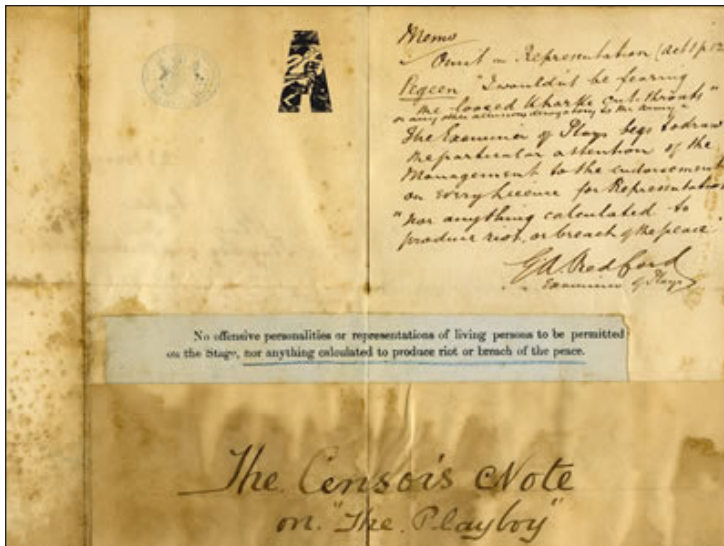 Memo
Omit in Representation (Act 1 p. 12
Pegeen "I wouldn't be fearing
the loosed Kharki cut-throats"
or any other allusions derogatory to the Army.
The Examiner of Plays begs to draw
the particular attention of the
Management to the endorsement
on every licence for Representation
"nor anything calculated to
produce riot, or breach of the peace.
G A Redford
Examiner of Plays
No offensive personalities or representations of living persons to be permitted
on the Stage, nor anything calculated to produce riot or breach of the peace.
The Censor's Note
on "The Playboy"